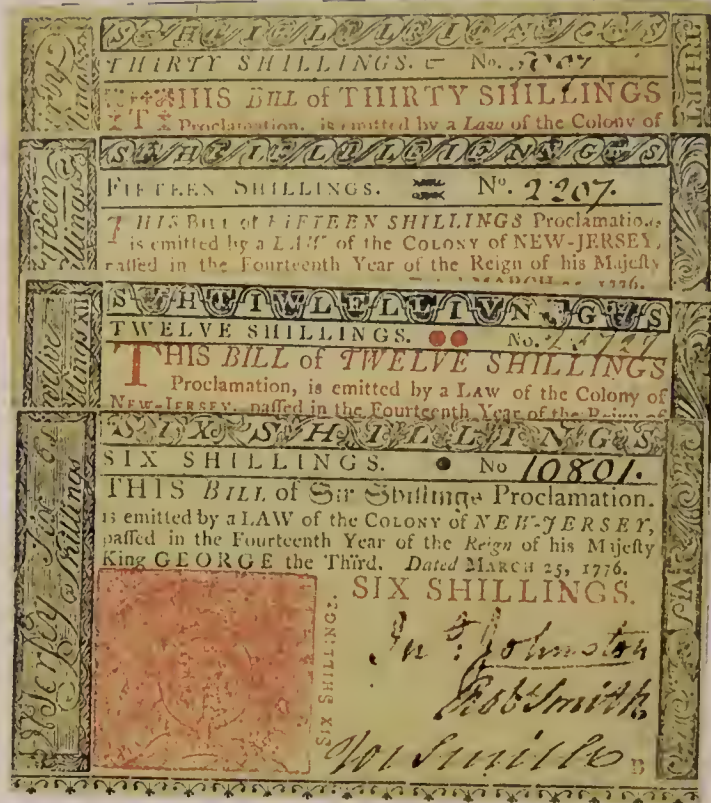 THIRTY SHILLINGS. No.
THIS BILL of THIRTY SHILLINGS
Proclamation, is emitted by a Law of the Colony of
FIFTEEN SHILLINGS. No. 2207.
THIS BILL of FIFTEEN SHILLINGS Proclamation,
is emitted by a LAW of the COLONY of NEW-JERSEY,
passed in the Fourteenth Year of the Reign of his Majesty
MARCH 25, 1776.
TWELVE SHILLINGS. No.
THIS BILL of TWELVE SHILLINGS
Proclamation, is emitted by a LAW of the Colony of
NEW-JERSEY, passed in the Fourteenth Year of the Reign of
SIX SHILLINGS
SIX SHILLINGS. No 10801.
THIS BILL of Six Shillings Proclamation.
is emitted by a LAW of the COLONY of NEW-JERSEY,
passed in the Fourteenth Year of the Reign of his Majesty
King GEORGE the Third. Dated MARCH 25, 1776.
SIX SHILLINGS.
SIX SHILLINGS.
Jno. Johnston
Robt Smith
Jos Smith
B
Jersey Six
Shillings